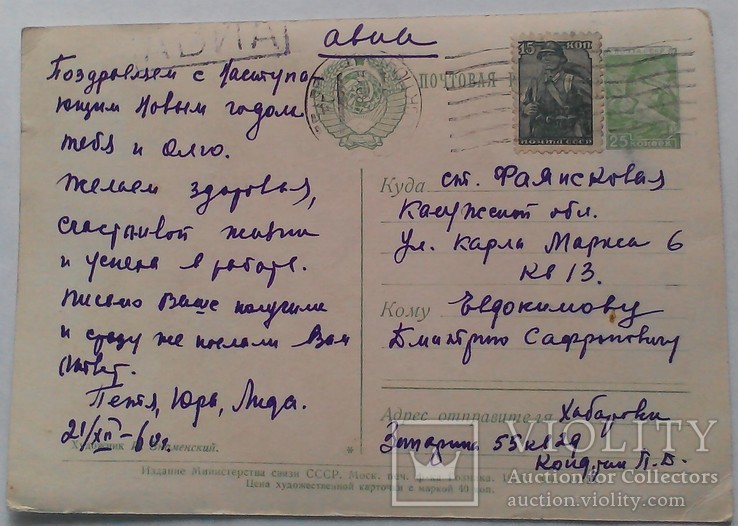 АВИА
авиа
Поздравляем с Наступа-
ющим Новым годом
тебя и Олю.
Желаем здоровья,
счастливой жизни
и успеха в работе.
Письмо Ваше получили
и сразу же послали Вам
Ответ.
Петя, Юра, Лида.
21/XII-60г.
ПОЧТОВАЯ
15 КОП
ПОЧТА СССР
25 КОПЕЕК
Куда ст. Фаянсовая
Калужской обл.
ул. Карла Маркса 6
кв 13.
Кому Евдокимову
Дмитрию Сафроновичу
Адрес отправителя Хабаровск
55 кв 29
П. Д.
Художник
Издание Министерства связи СССР. Моск. печ. ф-ка Гознака.
Цена художественной карточки с маркой 40 коп.
VIOLITY
Auction for Collectors
auction.violity.com